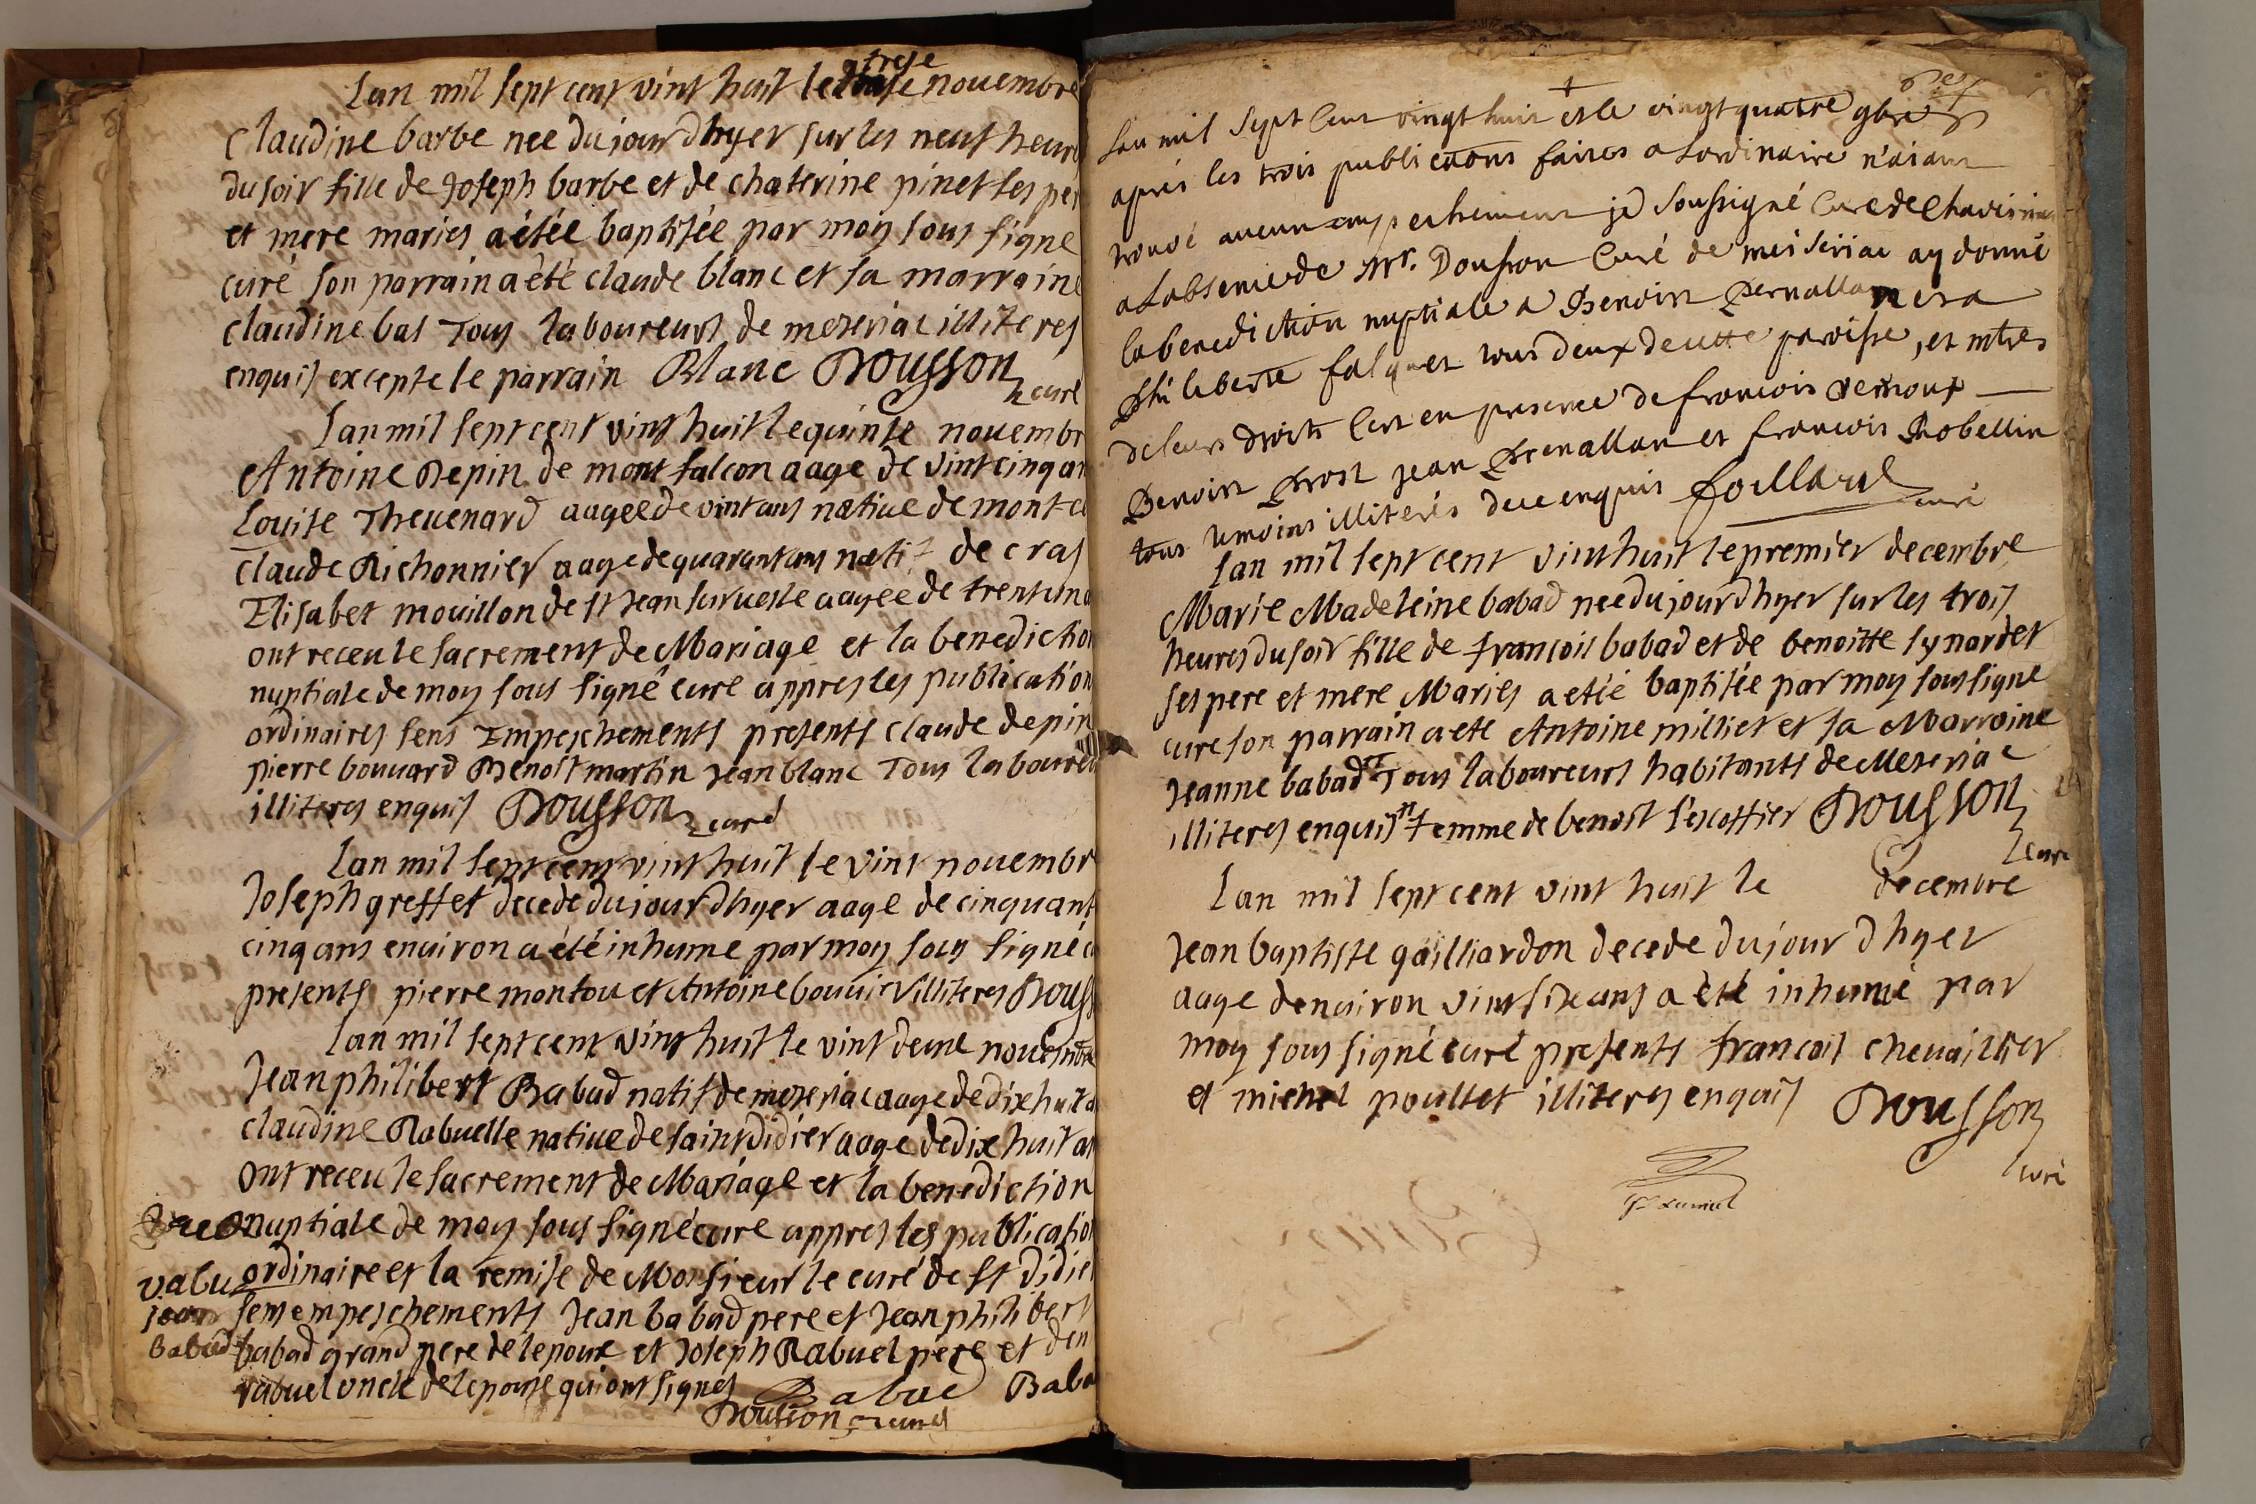 Lan mil sept cent vint huit le trese nouembre
Claudine barbe nee du jour dhyer sur les neuf heures
du soir fille de Joseph barbe et de chaterine pinet ses per
et mere maries a étée baptisée par moy sous signe
curé son parrain a été claude blanc et sa marraine
claudine bas Tous laboureurs de meseriac illiteres
enquis excepte le parrain Blanc Dousson curé
Lan mil sept cent vint huit le quinse nouembr
Antoine Depin de mont falcon aage de vint cinq an
Louise Theuenard aagee de vint ans natiue de mont
Claude Richonnier aage de quarant ans natif de cras
Elisabet mouillon de st Jean sur uesle aagée de trent
ont receu le sacrement de Mariage et la benediction
nuptiale de moy sous signé curé appres les publication
ordinaires sens Impeschements presents claude depin
pierre bouuard Benoist martin Jean blanc Tous laboure
illiteres enquis Dousson curé
Lan mil sept cent vint huit le vint nouembr
Joseph greffet decede du jour dhyer aage de cinquant
cinq ans enuiron a été inhume par moy sous signé
presents pierre montou et Antoine bouuier illiteres Douss
Lan mil sept cent vint huit le vint deux nouembre
Jean philibert Babad natif de meseriac aage de dix huit a
claudine Rabuelle natiue de saint didier aage de dix huit an
ont receu le sacrement de Mariage et la benediction
nuptiale de moy sous signé curé appres les publication
ordinaire et la remise de Monsieur le curé de st Didie
sens empeschements Jean babad pere et Jean philibert
babad grand pere de lepoux et Joseph Rabuel pere et den
rabuel oncle de lepouse qui ont signes Babad Baba
Dousson curé
vabu
jean
Babad
Lan mil sept cent vingt huit et le vingt quatre 9bre
aprés les trois publications faites a Lordinaire n'aiant
trouvé aucun empechement je soussigné curé de Chaveiriat
a Labsence de Mr. Dousson Curé de meiseriac ay donné
la benediction nuptiale a Benoist Pernallon et a
Philiberte falquet tous deux de cette paroisse, et mtres
de leurs droits Cest en presence de francois vernoux
Benoist Prost Jean Pernallon et francois Robellin
tous temoins illiterés de ce enquis foillard curé
Lan mil sept cent vint huit le premier decembre
Marie Madeleine babad nee du jour dhyer sur les trois
heures du soir fille de francois babad et de benoitte synardet
ses pere et mere Maries a etée baptisée par moy sous signe
cure son parrain a ete Antoine milliet et sa Marraine
Jeanne babad Tous laboureurs habitants de Meseriac
illiteres enquis femme de benoist lescoffier Dousson
curé
Lan mil sept cent vint huit le decembre
Jean baptiste gailliardon decede du jour dhyer
aage denuiron vint six ans a été inhumé par
moy sous signé curé presents francois cheuaillier
et michel poullet illiteres enquis Dousson
curé